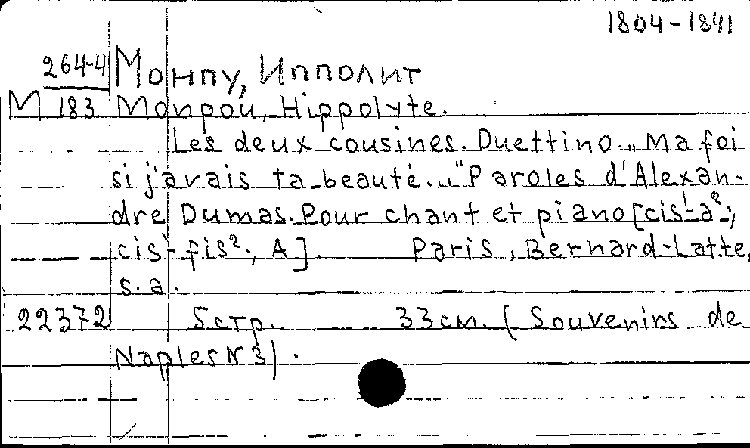 1804-1841
264-4 Монпу, Ипполит
M 183 Monpou, Hippolyte.
Les deux cousines. Duettino. „Ma foi
si j'avais ta beauté..." Paroles d'Alexan-
dre Dumas. Pour chant et piano [cis¹-a²;
cis¹-fis²; A]. Paris, Bernard-Latte,
s.a.
22372 5 стр. 33 см. (Souvenirs de
Naples N 3).